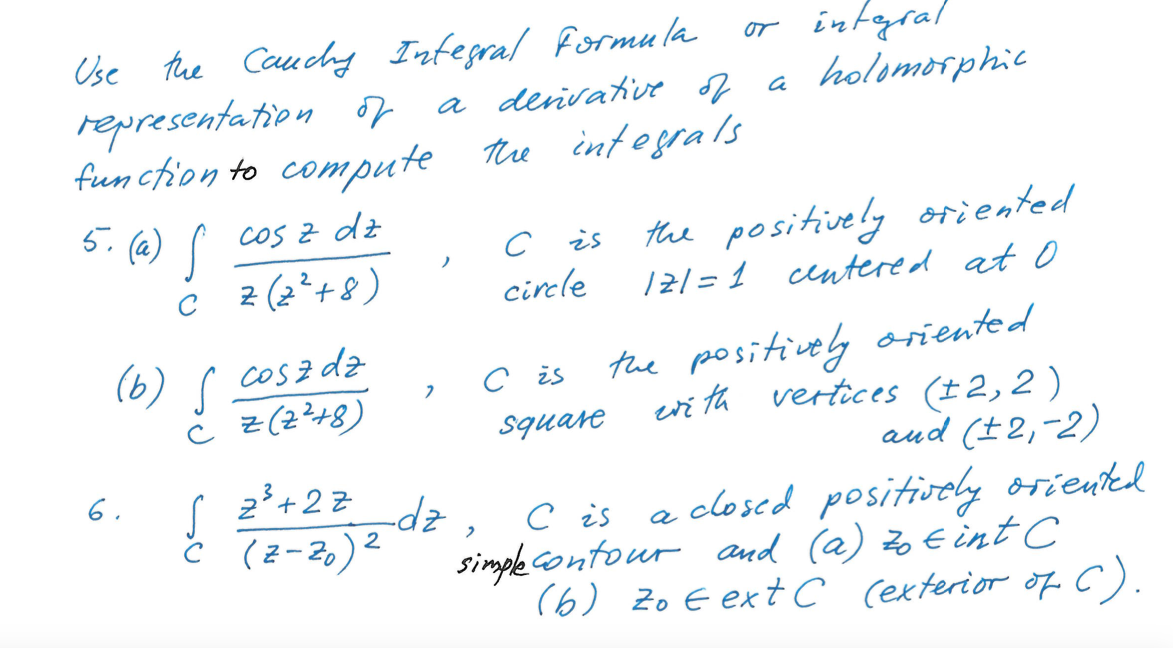 Use the Cauchy Integral Formula or integral
representation of a derivative of a holomorphic
function to compute the integrals
5. (a) ∫_C cos z dz / z(z²+8) , C is the positively oriented
circle |z|=1 centered at 0
(b) ∫_C cos z dz / z(z²+8) , C is the positively oriented
square with vertices (±2,2)
and (±2,-2)
6. ∫_C z³+2z / (z-z₀)² dz , C is a closed positively oriented
simple contour and (a) z₀ ∈ int C
(b) z₀ ∈ ext C (exterior of C).